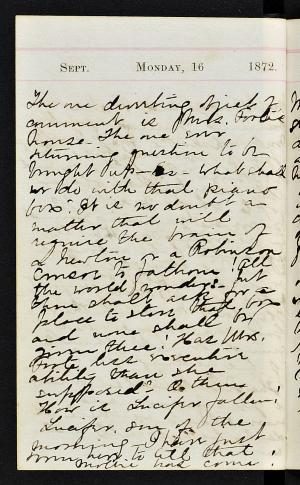 Sept. Monday, 16 1872.
The one diverting object of
comment is Mrs. Foote's
house. The one ever
returning question to be
brought up - is - what shall
we do with that piano
box. It is no doubt a
matter that will
require the brain of
a Newton or a Robinson
Crusoe to fathom! All
the world wonders. But
thou shalt ask for a
place to store that box
and none shall be
given thee! Has Mrs.
Foote less executive
ability than she
supposed?
How is Lucifer fallen!
Lucifer, son of the
morning. I have just
here to tell that
Mollie had come!